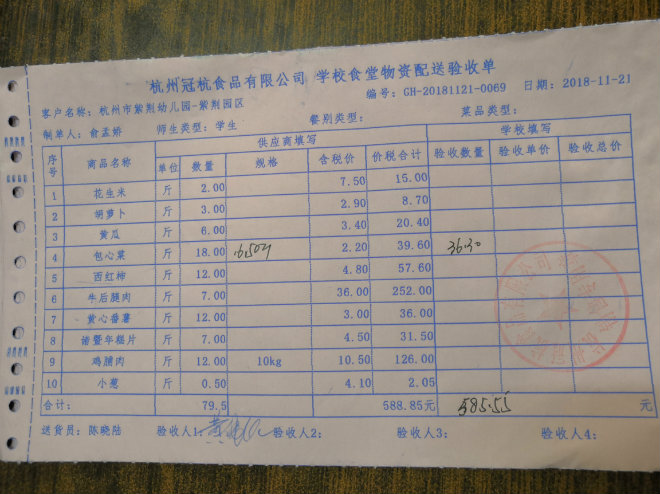 杭州冠杭食品有限公司 学校食堂物资配送验收单
编号: GH-20181121-0069 日期: 2018-11-21
客户名称: 杭州市紫荆幼儿园-紫荆园区 餐别类型: 菜品类型:
制单人: 俞孟娇 师生类型: 学生
供应商填写 学校填写
序号 商品名称 单位 数量 规格 含税价 价税合计 验收数量 验收单价 验收总价
1 花生米 斤 2.00 7.50 15.00
2 胡萝卜 斤 3.00 2.90 8.70
3 黄瓜 斤 6.00 3.40 20.40
4 包心菜 斤 18.00 2.20 39.60 36.30
5 西红柿 斤 12.00 4.80 57.60
6 牛后腿肉 斤 7.00 36.00 252.00
7 黄心番薯 斤 12.00 3.00 36.00
8 诸暨年糕片 斤 7.00 4.50 31.50
9 鸡脯肉 斤 12.00 10kg 10.50 126.00
10 小葱 斤 0.50 4.10 2.05
合计: 79.5 588.85元 585.55 元
送货员: 陈晓陆 验收人1: 验收人2: 验收人3: 验收人4: